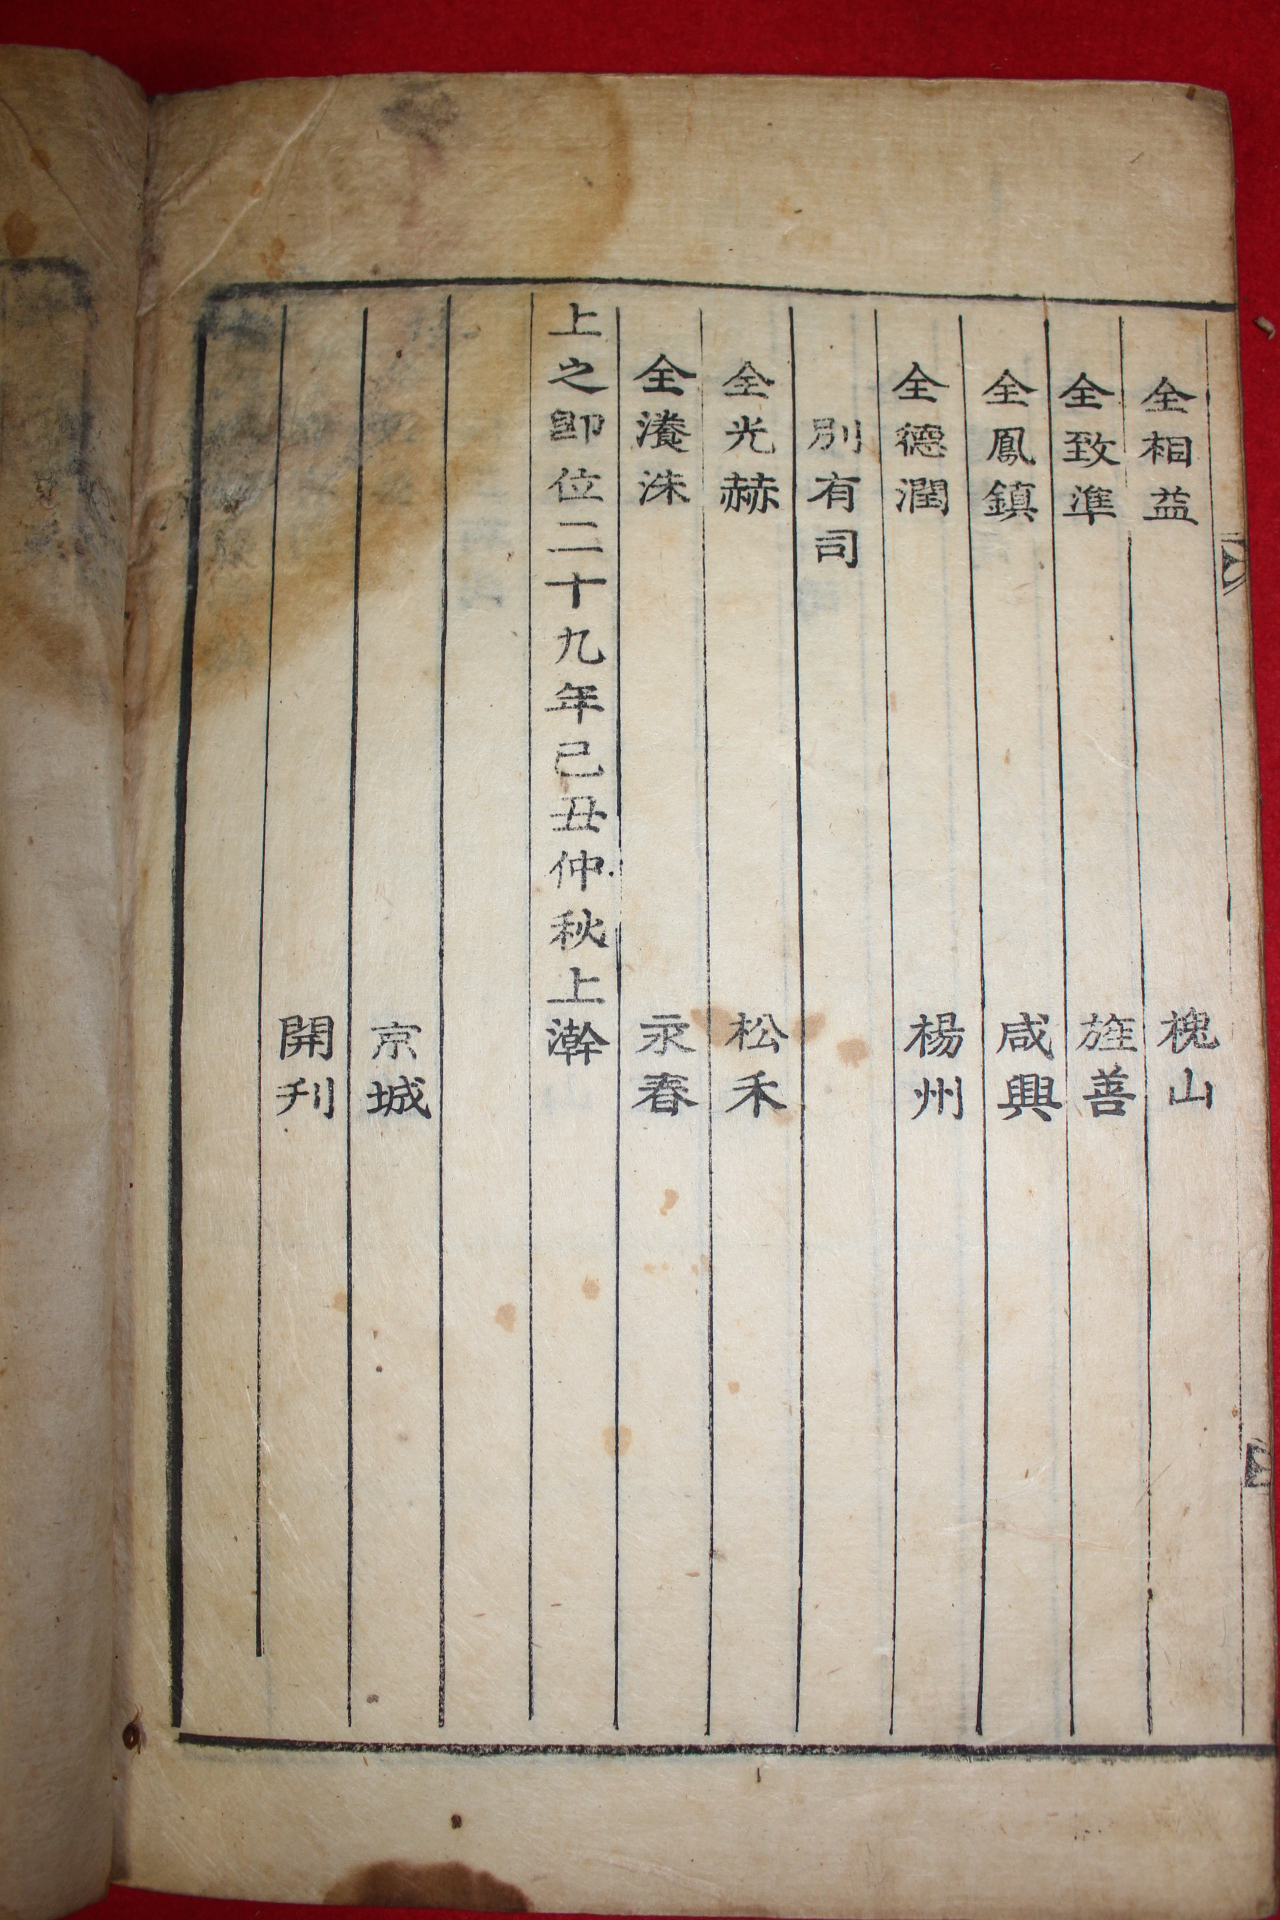 全相益 槐山
全致準 旌善
全鳳鎮 咸興
全德潤 楊州
別有司
全光赫 松禾
全瀁洙 永春
上之卽位二十九年己丑仲秋上澣
京城
開刋